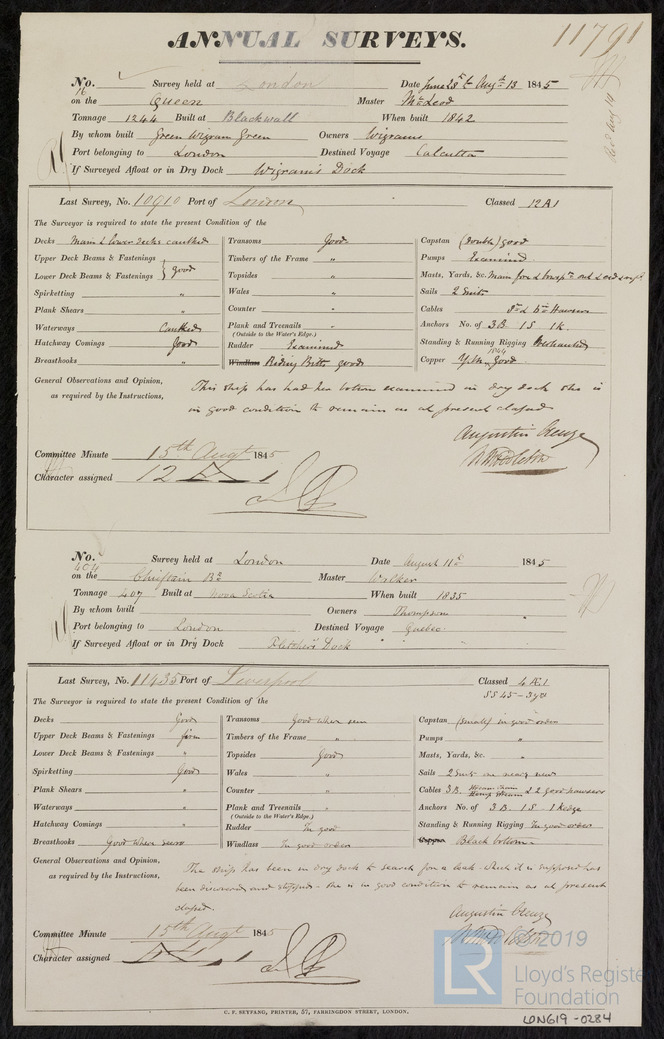 11791
ANNUAL SURVEYS.
No. 16 Survey held at London Date June 28th & Augt 13 1845
on the Queen Master McLeod
Tonnage 1244 Built at Blackwall When built 1842
By whom built Green Wigram Green Owners Wigrams
Port belonging to London Destined Voyage Calcutta
If Surveyed Afloat or in Dry Dock Wigram's Dock
Recd Aug 14
Last Survey, No. 10910 Port of London Classed 12 A 1
The Surveyor is required to state the present Condition of the
Decks Main & lower decks caulked
Upper Deck Beams & Fastenings } good
Lower Deck Beams & Fastenings
Spirketting "
Plank Shears "
Waterways Caulked
Hatchway Comings Good
Breasthooks "
Transoms Good
Timbers of the Frame "
Topsides "
Wales "
Counter "
Plank and Treenails "
(Outside to the Water's Edge.)
Rudder Examined
Windlass Riding Bitts good
Capstan (double) good
Pumps Examined
Masts, Yards, &c. Main fore & bowspt out
Sails 2 Suits
Cables Hawsers
Anchors No. of 3 B. 1 S 1 K.
Standing & Running Rigging Overhauled
Copper 1844 Good
General Observations and Opinion,
as required by the Instructions,
This ship has had her bottom examined in dry dock she is
in good condition to remain as at present classed
Augustin Creuze
Committee Minute 15th Augt 1845
Character assigned 12 A 1
No. 404 Survey held at London Date August 11th 1845
on the Chieftain Bk Master Walker
Tonnage 407 Built at Nova Scotia When built 1835
By whom built Owners Thompson
Port belonging to London Destined Voyage Quebec
If Surveyed Afloat or in Dry Dock Fletcher's Dock
Last Survey, No. 11435 Port of Liverpool Classed 4 Æ 1
SS 45 - 3 yrs
The Surveyor is required to state the present Condition of the
Decks Good
Upper Deck Beams & Fastenings firm
Lower Deck Beams & Fastenings "
Spirketting Good
Plank Shears "
Waterways "
Hatchway Comings "
Breasthooks Good where seen
Transoms Good where seen
Timbers of the Frame "
Topsides Good
Wales "
Counter "
Plank and Treenails "
(Outside to the Water's Edge.)
Rudder In good
Windlass In good order
Capstan (Small) in good order
Pumps "
Masts, Yards, &c. "
Sails 2 Suits one nearly new
Cables 3 B. Stream Chain Hemp Stream & 2 good hawsers
Anchors No. of 3 B. 1 S 1 Kedge
Standing & Running Rigging In good order
Copper Black bottom
General Observations and Opinion,
as required by the Instructions,
The ship has been in dry dock to search for a leak which it is supposed has
been discovered and stopped - she is in good condition to remain as at present
classed.
Augustin Creuze
Committee Minute 15th Augt 1845
Character assigned Æ 1
C. F. SEYFANG, PRINTER, 57, FARRINGDON STREET, LONDON.
LR
© 2019
Lloyd's Register
Foundation
LON619-0284